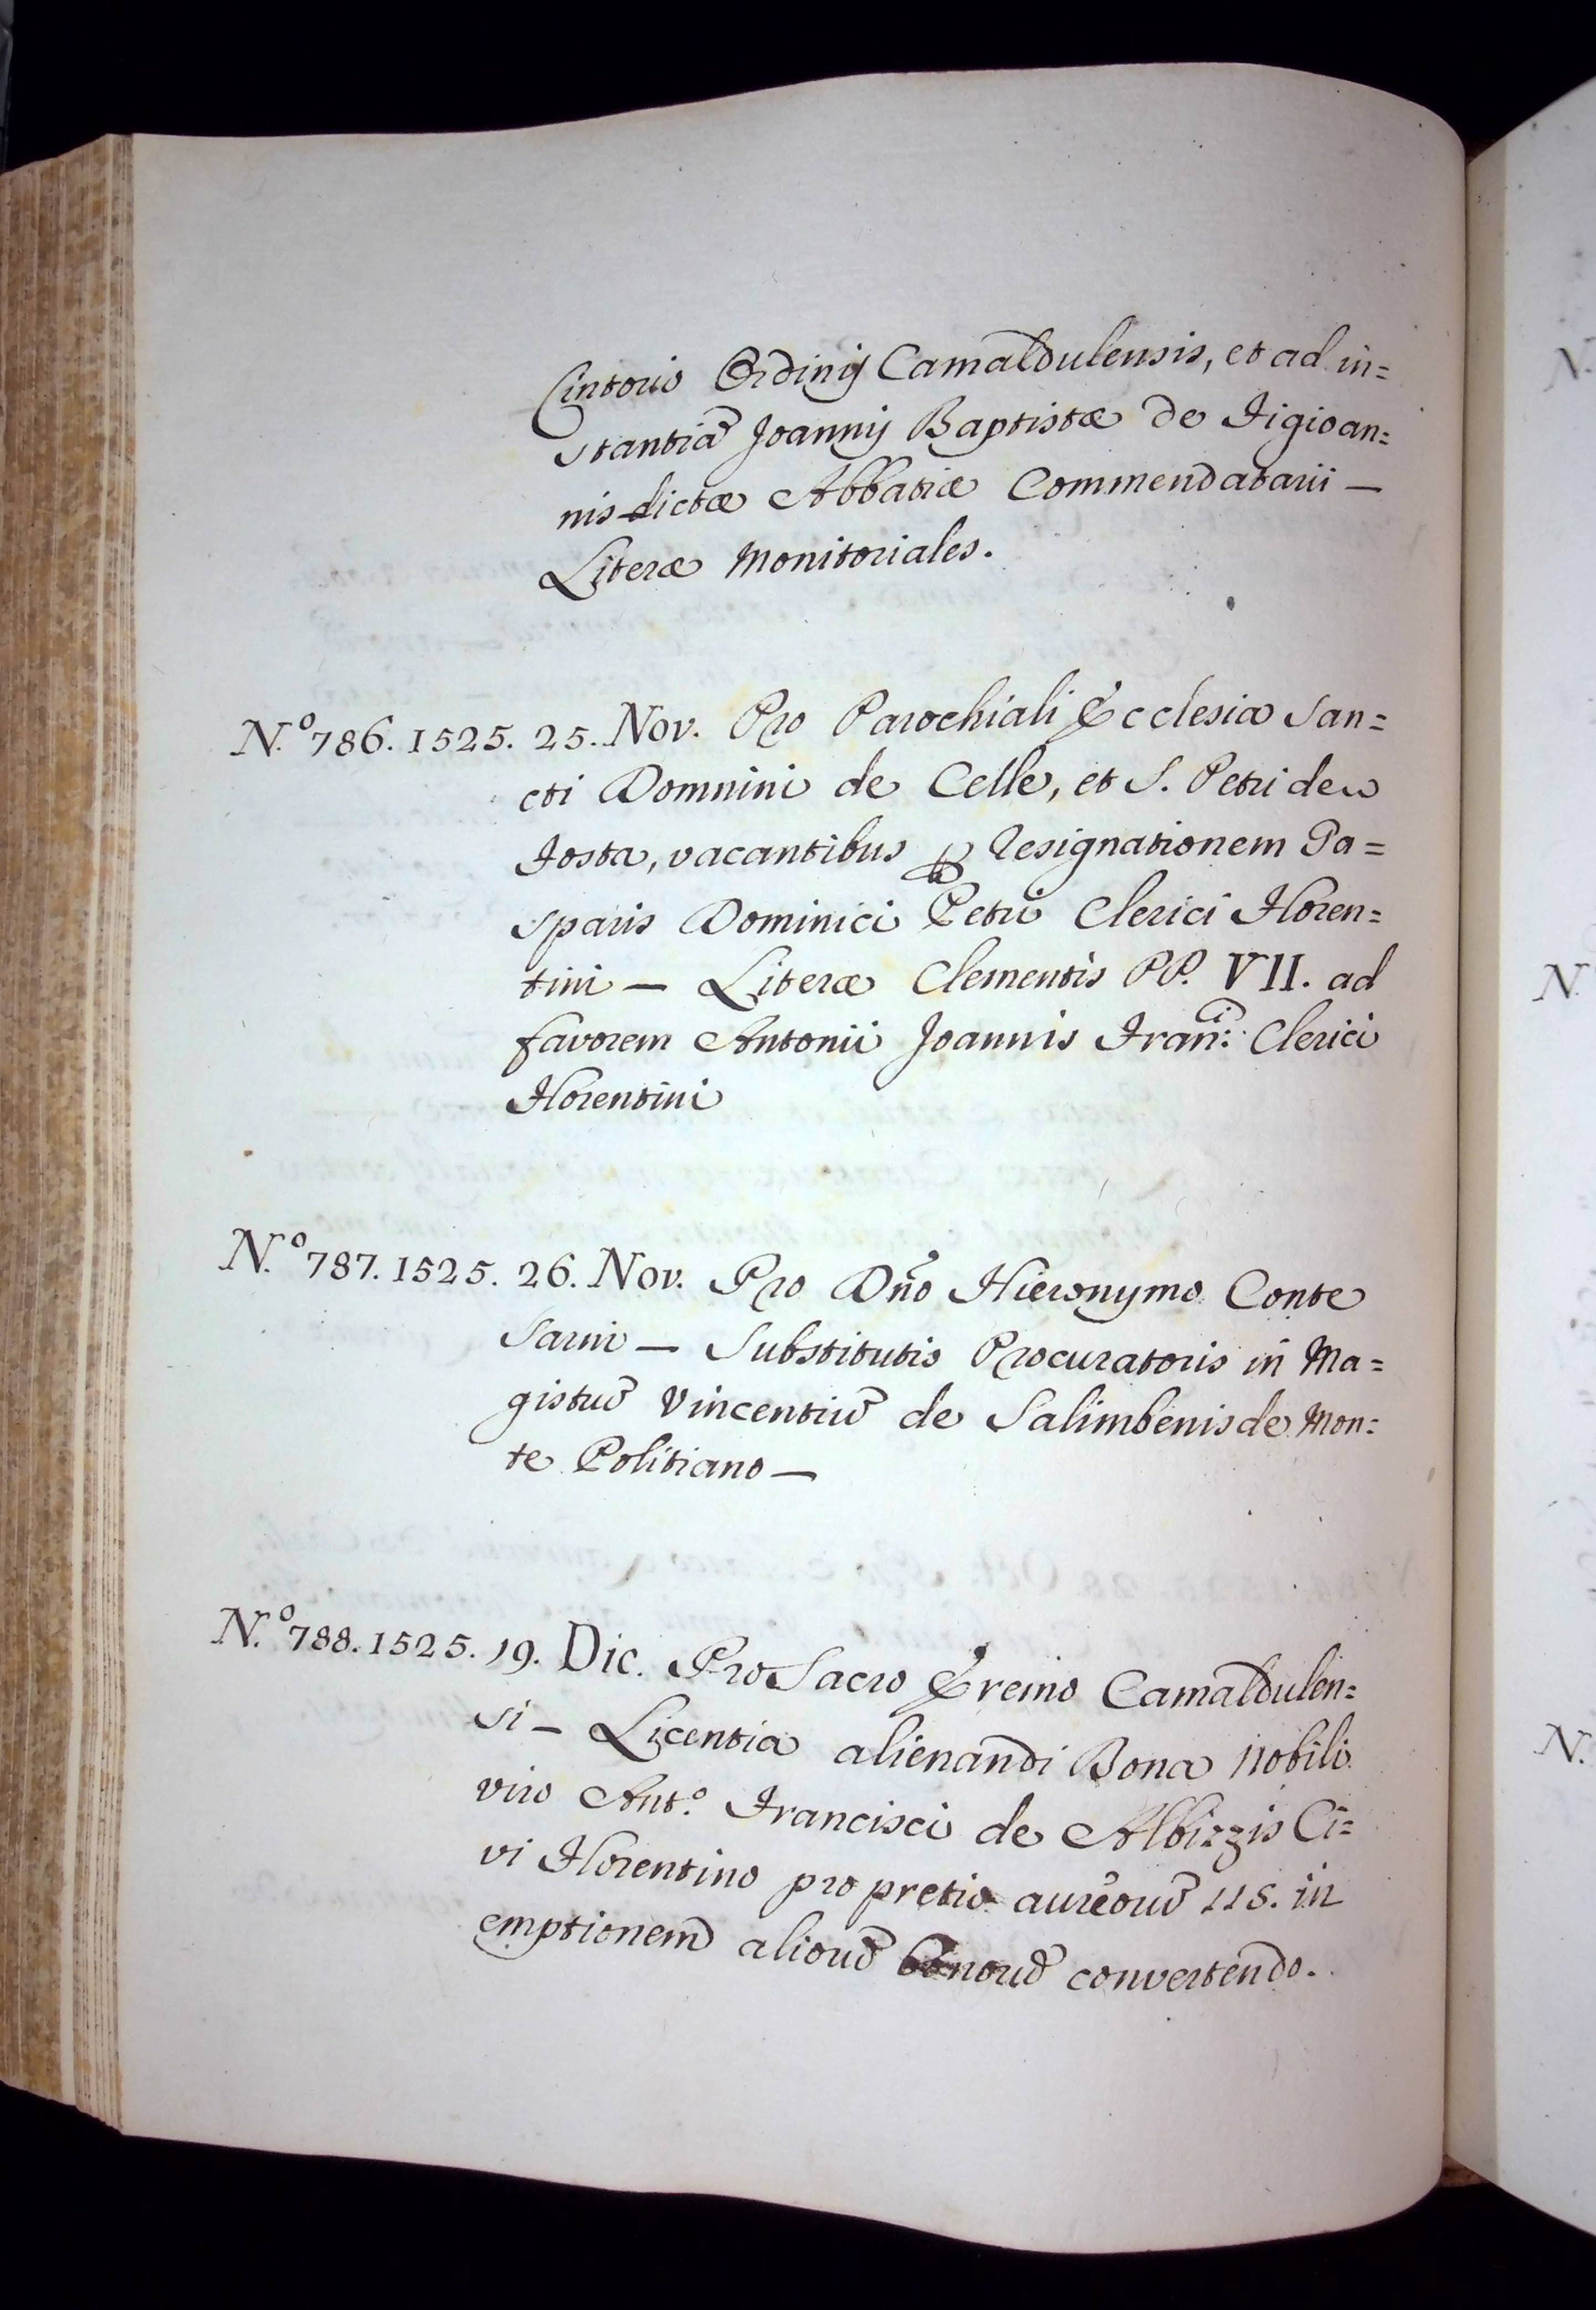 Cintorio Ordinis Camaldulensis, et ad in=
stantiã Joannis Baptistæ de Figioan=
nis dictæ Abbatiæ Commendatarii —
Literæ Monitoriales.
N.º 786. 1525. 25. Nov. Pro Parochiali Ecclesia San=
cti Domnini de Celle, et S. Petri de
Fosta, vacantibus ꝑ Resignationem Ga=
sparis Dominici Petri Clerici Floren=
tini — Literæ Clementis PP. VII. ad
favorem Antonii Joannis Franci: Clerici
Florentini
N.º 787. 1525. 26. Nov. Pro Dño Hieronymo Conte
Sarni — Substitutis Procuratoris in Ma=
gistrũ Vincentiũ de Salimbenis de Mon=
te Politiano —
N.º 788. 1525. 19. Dic. Pro Sacro Eremo Camaldulen=
si — Licentia alienandi Bona Nobili
viro Ant.º Francisci de Albizzis Ci=
vi Florentino pro pretio aureorũ 115. in
emptionem aliorũ Bonorũ convertendo.
N.
N.
N.